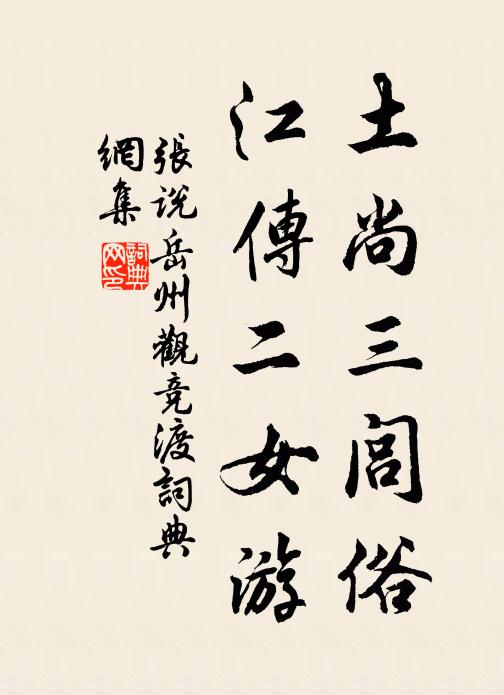 土尚三闾俗
江傳二女游
張说岳州觀竞渡詞典
網集
詞典
网印